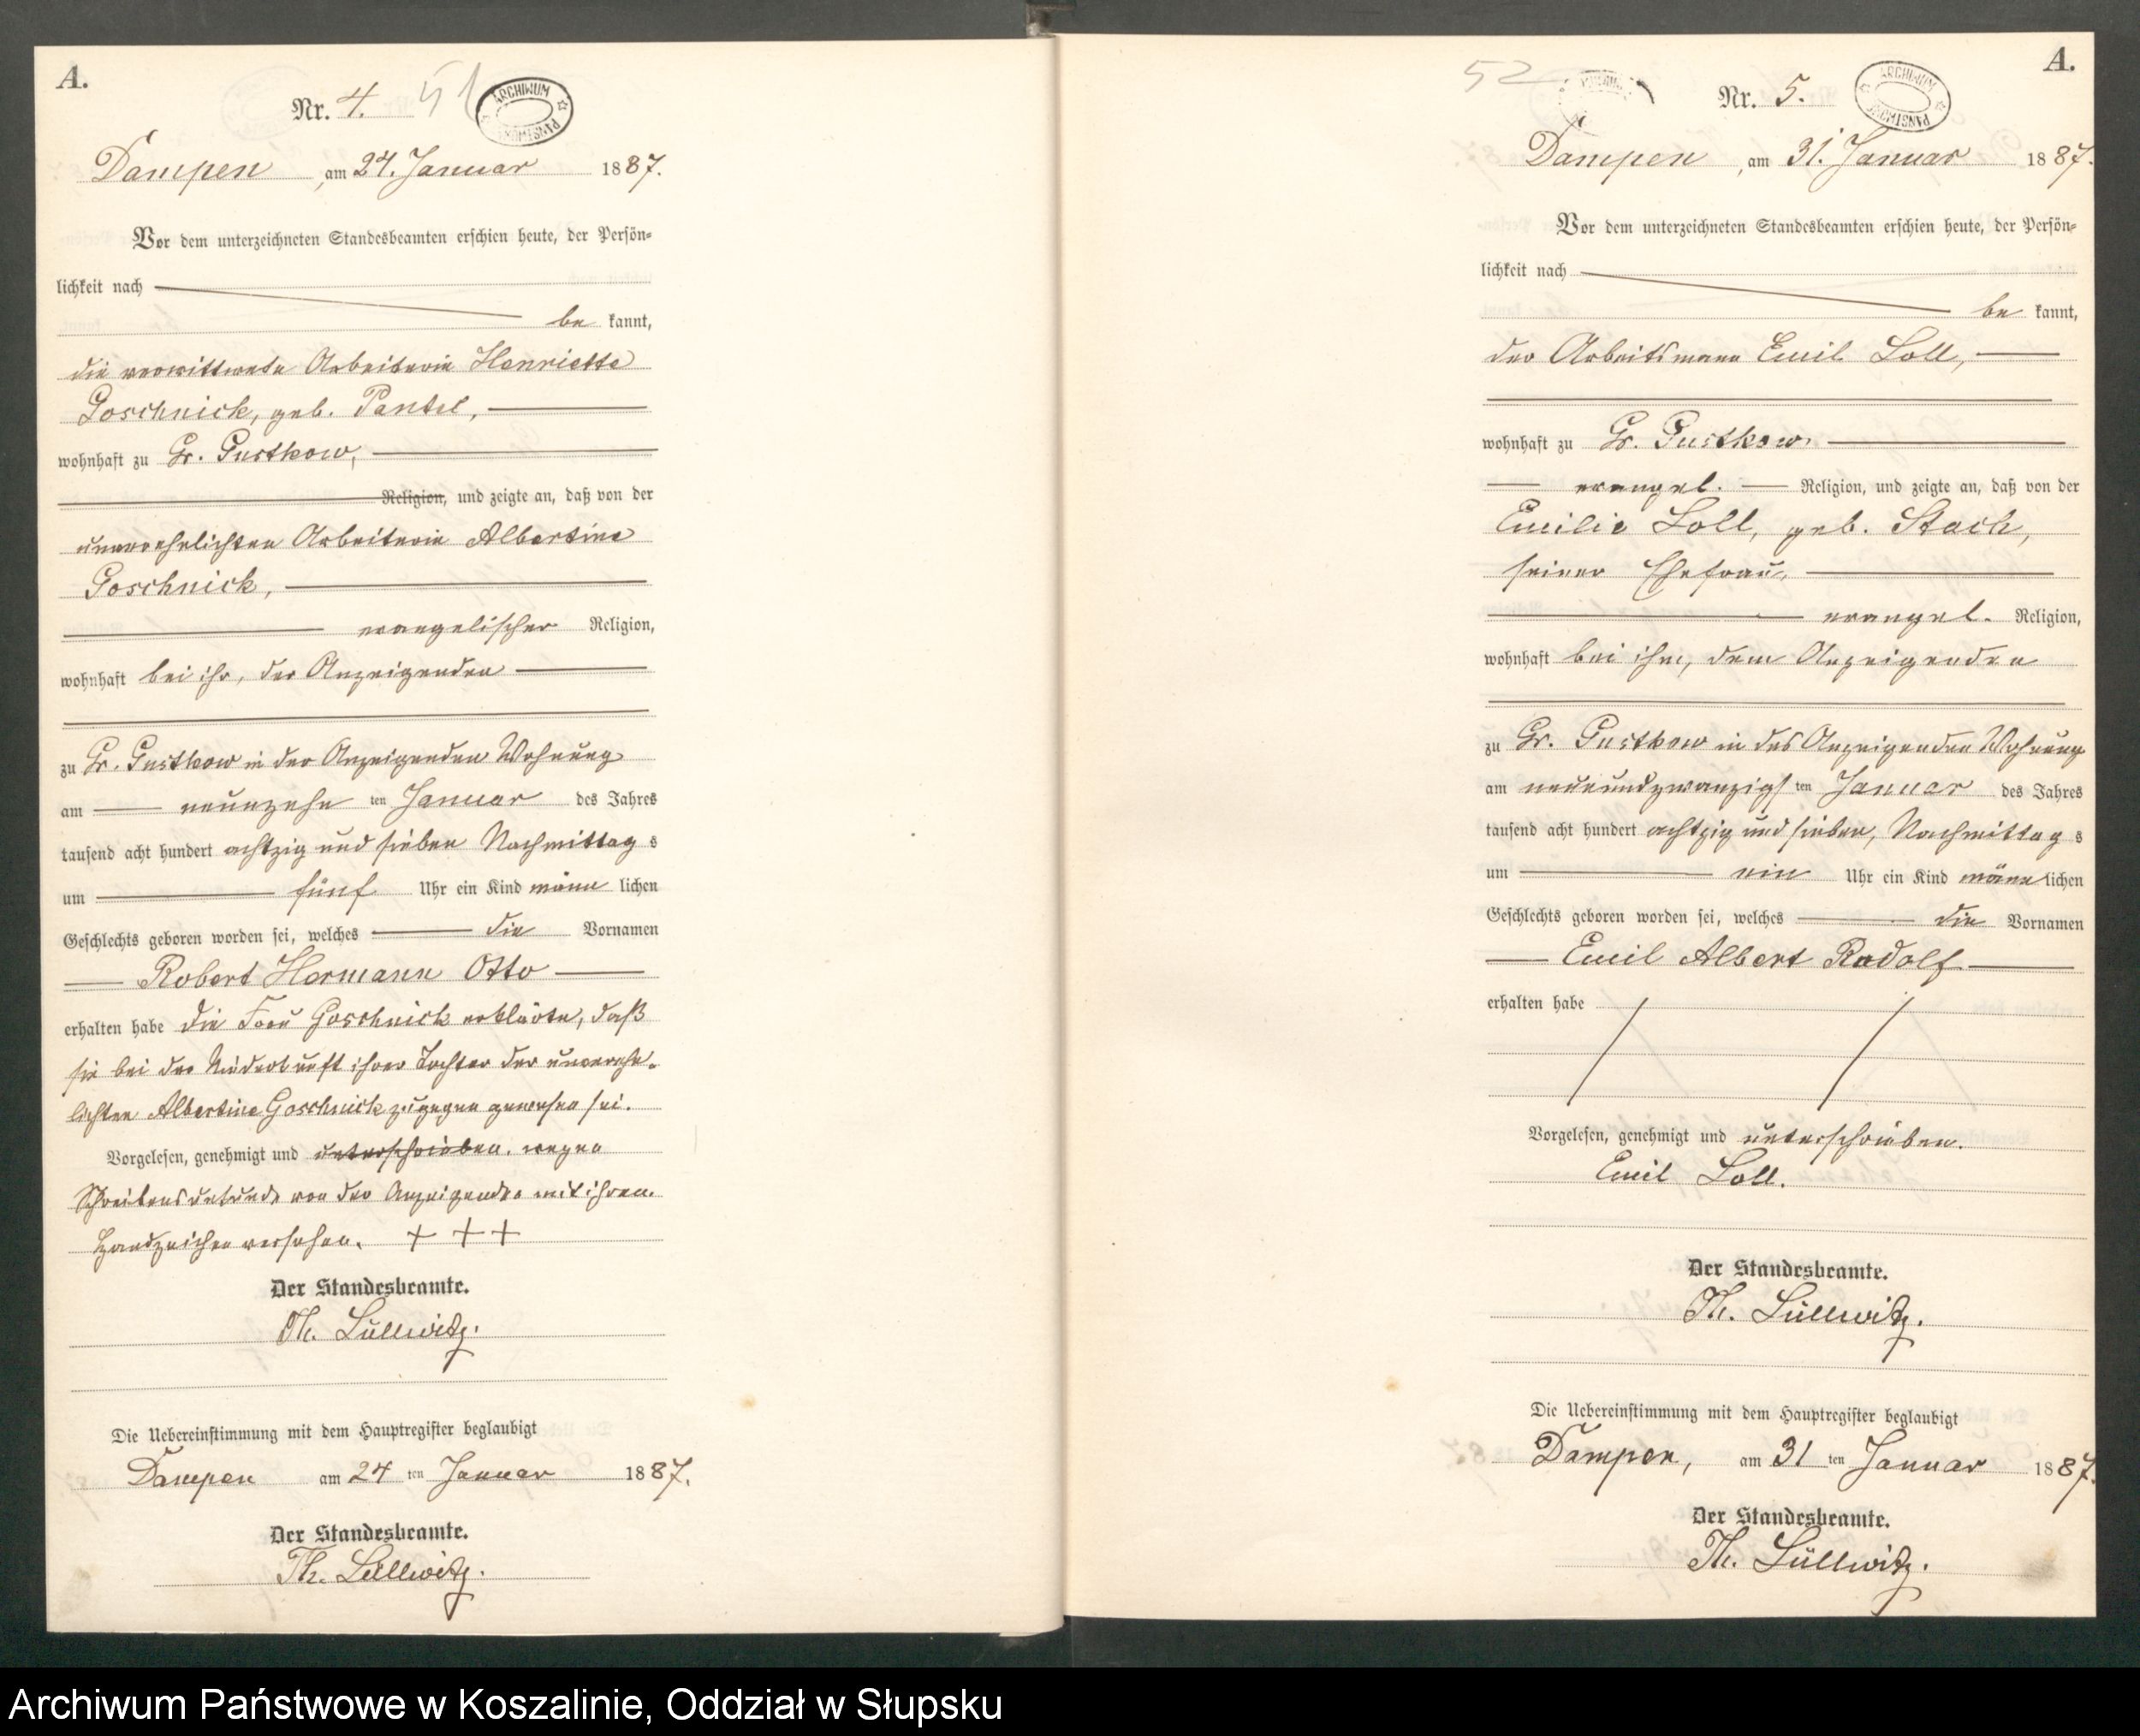 A.
Nr. 4. 51
ARCHIWUM PAŃSTWOWE
Dampen, am 24. Januar 1887.
Vor dem unterzeichneten Standesbeamten erschien heute, der Persön-
lichkeit nach
be kannt,
die verwittwete Arbeiterin Henriette
Goschnick, geb. Pantel,
wohnhaft zu Gr. Gustkow,
Religion, und zeigte an, daß von der
unverehelichten Arbeiterin Albertine
Goschnick,
evangelischer Religion,
wohnhaft bei ihr, der Anzeigenden
zu Gr. Gustkow in der Anzeigenden Wohnung
am neunzehn ten Januar des Jahres
tausend acht hundert achtzig und sieben Nachmittag s
um fünf Uhr ein Kind männ lichen
Geschlechts geboren worden sei, welches die Vornamen
Robert Hermann Otto
erhalten habe die Frau Goschnick erklärte, daß
sie bei der Niederkunft ihrer Tochter der unverehe-
lichten Albertine Goschnick zugegen gewesen sei.
Vorgelesen, genehmigt und unterschrieben. wegen
Schreibensunkunde von der Anzeigenden mit ihren
Handzeichen versehen. + + +
Der Standesbeamte.
Th. Lüllwitz.
Die Uebereinstimmung mit dem Hauptregister beglaubigt
Dampen am 24 ten Januar 1887.
Der Standesbeamte.
Th. Lüllwitz.
52 A.
Nr. 5.
ARCHIWUM PAŃSTWOWE
Dampen, am 31. Januar 1887.
Vor dem unterzeichneten Standesbeamten erschien heute, der Persön-
lichkeit nach
be kannt,
der Arbeitsmann Emil Loll,
wohnhaft zu Gr. Gustkow.
evangel. Religion, und zeigte an, daß von der
Emilie Loll, geb. Stach,
seiner Ehefrau,
evangel. Religion,
wohnhaft bei ihm, dem Anzeigenden
zu Gr. Gustkow in des Anzeigenden Wohnung
am neunundzwanzigs ten Januar des Jahres
tausend acht hundert achtzig und sieben, Nachmittag s
um ein Uhr ein Kind männ lichen
Geschlechts geboren worden sei, welches die Vornamen
Emil Albert Rudolf
erhalten habe
Vorgelesen, genehmigt und unterschrieben.
Emil Loll.
Der Standesbeamte.
Th. Lüllwitz.
Die Uebereinstimmung mit dem Hauptregister beglaubigt
Dampen, am 31 ten Januar 1887.
Der Standesbeamte.
Th. Lüllwitz.
Archiwum Państwowe w Koszalinie, Oddział w Słupsku